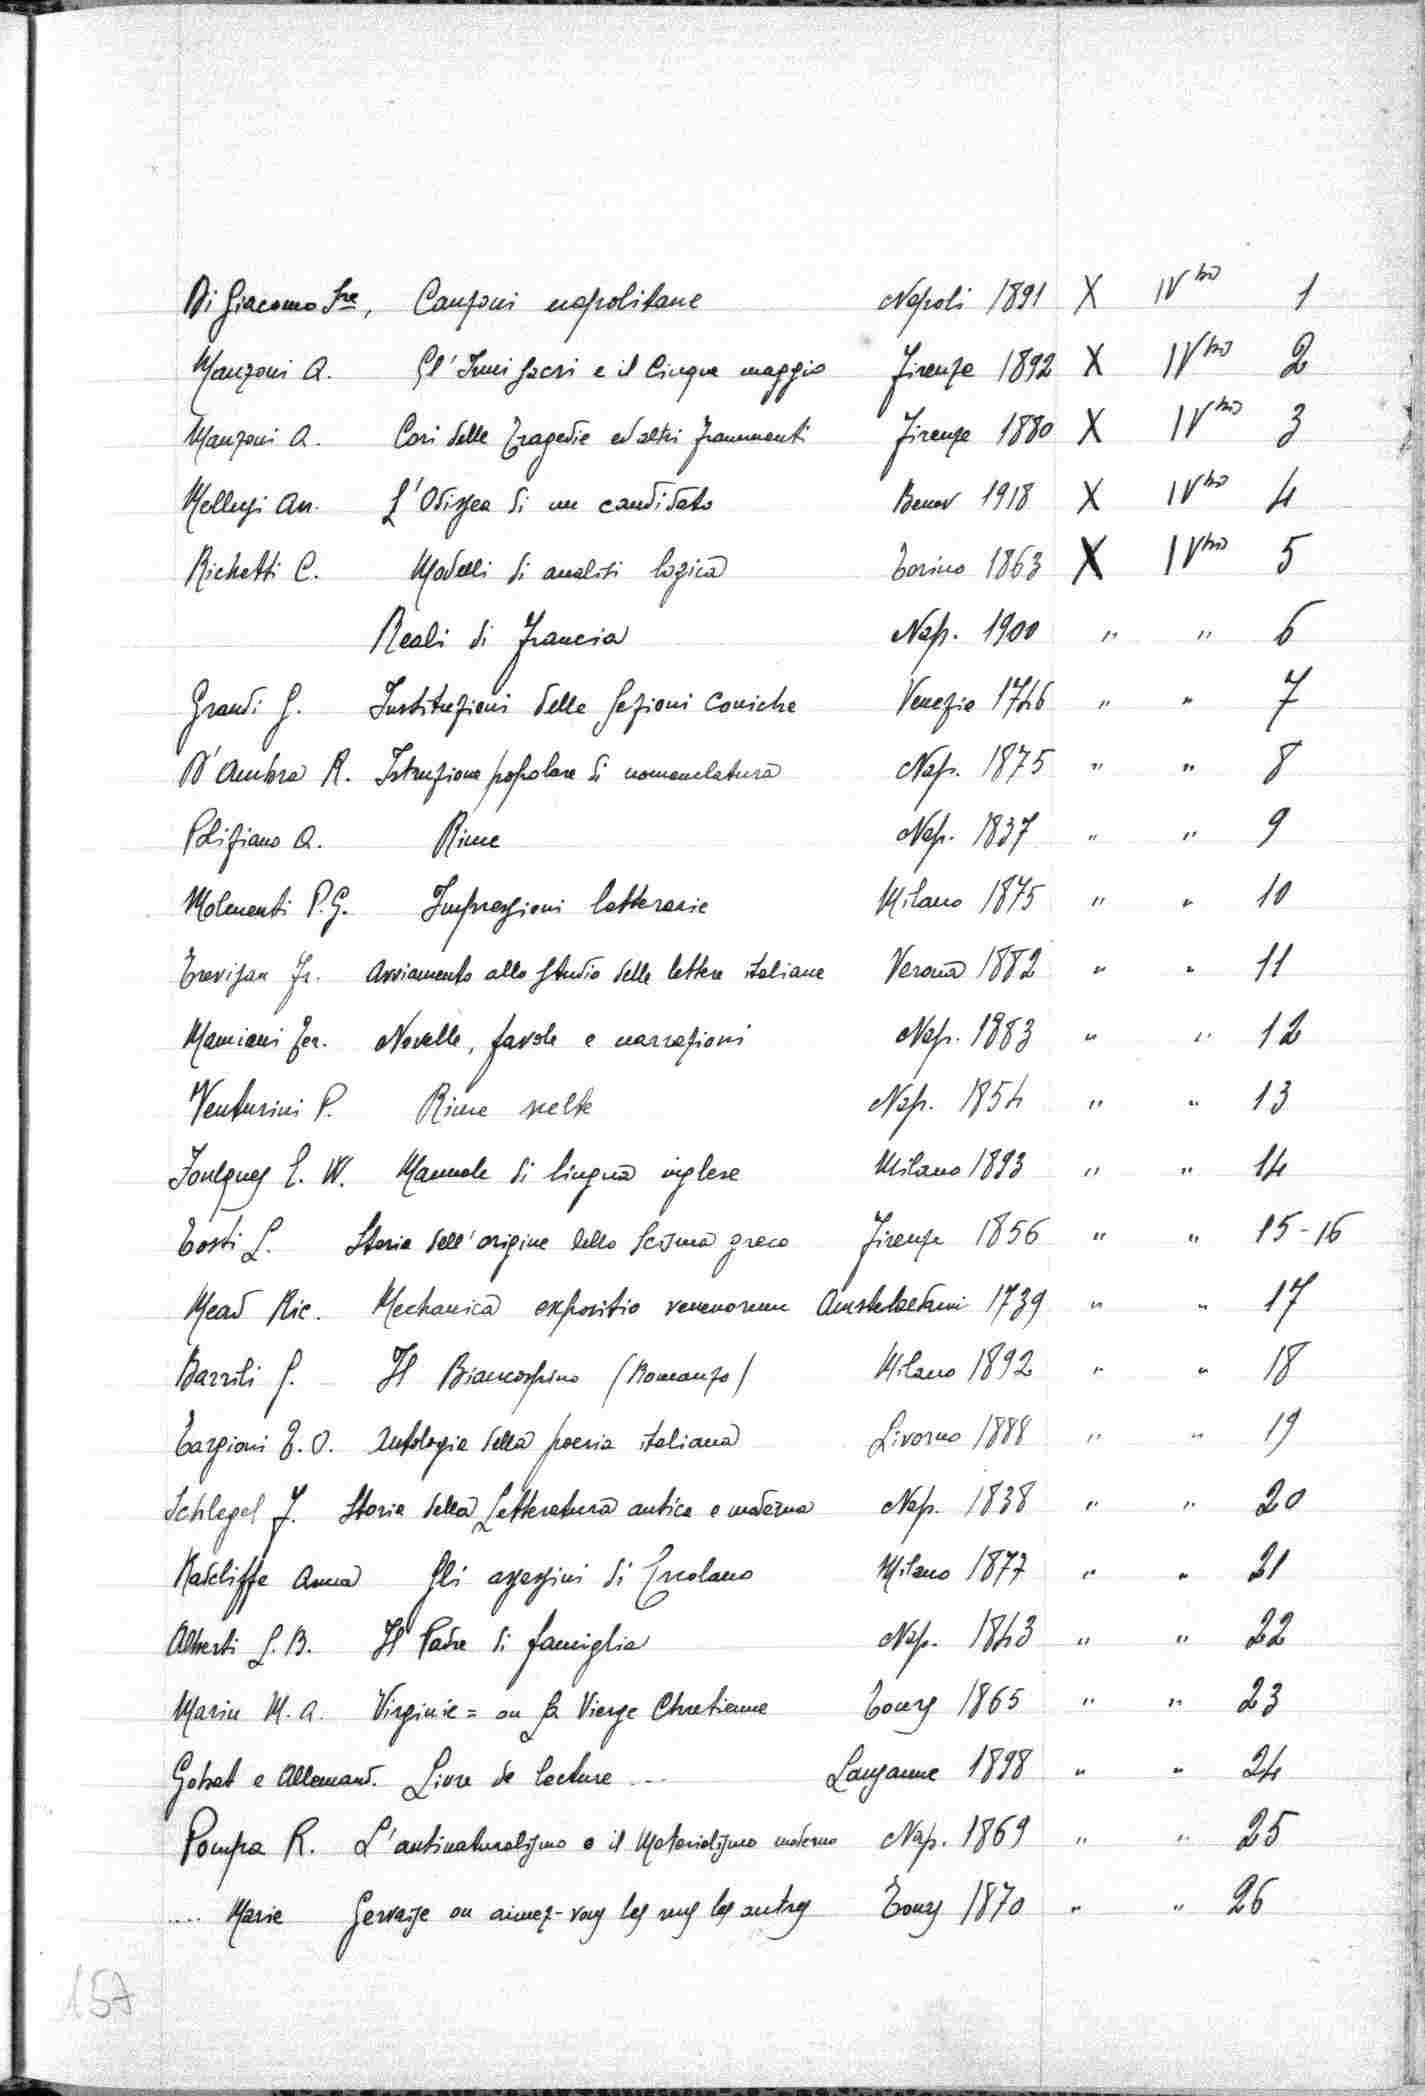 Di Giacomo Sre, Canzoni napolitane Napoli 1891 X IV bis 1
Manzoni A. Gl'Inni sacri e il Cinque maggio Firenze 1892 X IV bis 2
Manzoni A. Cori delle Tragedie ed altri frammenti Firenze 1880 X IV bis 3
Mellusi An. L'Odissea di un candidato Benev 1918 X IV bis 4
Richetti C. Modelli di analisi logica Torino 1863 X IV bis 5
Reali di Francia Nap. 1900 " " 6
Grandi G. Instituzioni delle Sezioni coniche Venezia 1746 " " 7
D'Ambra R. Istruzione popolare di nomenclatura Nap. 1875 " " 8
Poliziano A. Rime Nap. 1837 " " 9
Molmenti P.G. Impressioni letterarie Milano 1875 " " 10
Trevisan Fr. Avviamento allo studio delle lettere italiane Verona 1882 " " 11
Mamiani Ter. Novelle, favole e narrazioni Nap. 1883 " " 12
Venturini P. Rime scelte Nap. 1854 " " 13
Foulques E. W. Manuale di lingua inglese Milano 1893 " " 14
Tosti L. Storia dell'origine dello Scisma greco Firenze 1856 " " 15-16
Mead Ric. Mechanica expositio venenorum Amstelaedami 1739 " " 17
Barrili G. Il Biancospino (Romanzo) Milano 1892 " " 18
Targioni T. O. Antologia della poesia italiana Livorno 1888 " " 19
Schlegel F. Storia della Letteratura antica e moderna Nap. 1838 " " 20
Radcliffe Anna Gli assassini di Ercolano Milano 1877 " " 21
Alberti L. B. Il Padre di famiglia Nap. 1843 " " 22
Marin M. A. Virginie = ou la Vierge Chretienne Tours 1865 " " 23
Gobat e Allemand. Livre de lecture ... Lausanne 1898 " " 24
Pompa R. L'antinaturalismo e il Materialismo moderno Nap. 1869 " " 25
.... Marie Gervaise ou aimez-vous les uns les autres Tours 1870 " " 26
157